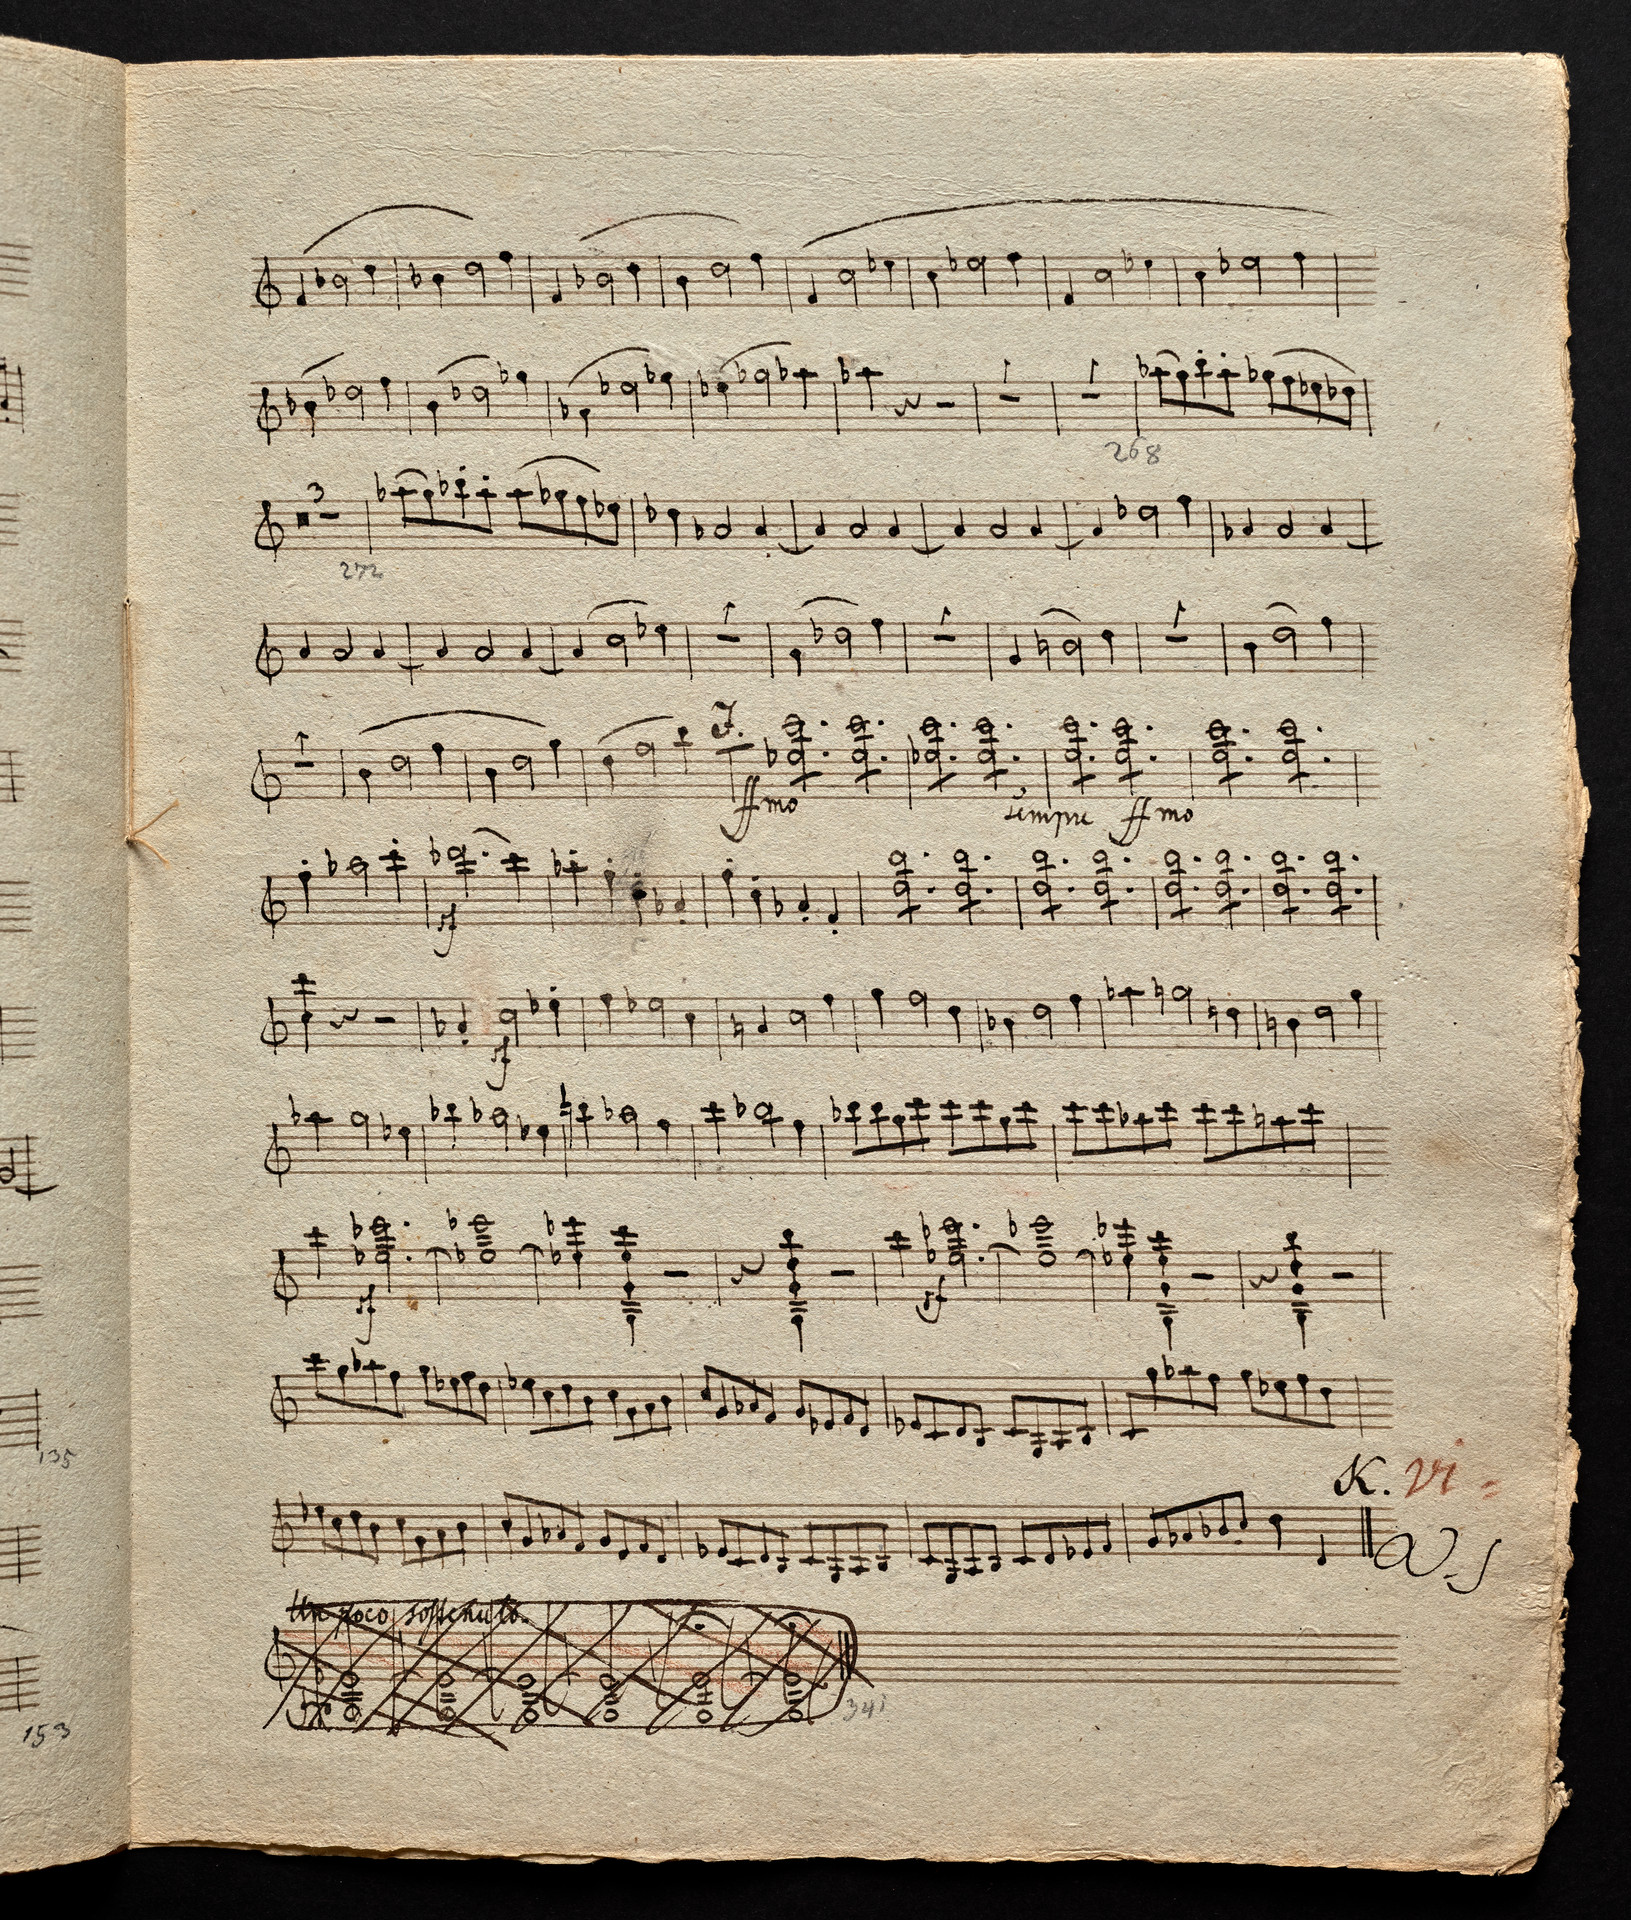 1
1
268
3
272
1
1
1
1
J.
ffmo
sempre ffmo
sf
sf
sf
sf
135
K. Vi =
V. S
Un poco sostenuto.
341
153